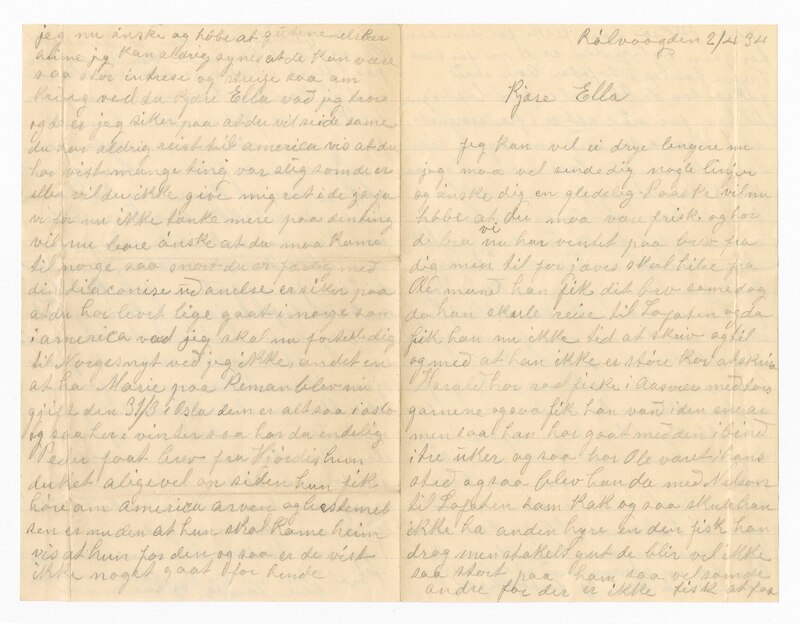 Rølvaagden 2/4 34
Kjære Ella
Jeg kan vel ei drye lengere nu
jeg maa vel sende dig nogle linjer
og ønske dig en gledelig Paaske vil nu
håbe at du maa være friske og har
de bra vi nu har ventet paa brev fra
dig men til forjæves skal hilse fra
Ole mand han fik dit brev same dag
da han skule reise til Lofoten og da
fik han nu ikke tid at skriv og til
og med at han ikke er støre kar at skriv
Harald har rod fiske i Aasvær med tors
garnene og saa fik han vað i den ene ar
men saa han har gaat med den i bind
i tre uker og saa har Ole været i hans
sted og saa blev han da med Nelson
til Lofoten sam kok og saa skule han
ikke ha anden hyre en den fisk han
drog men stakels gut de blir vel ikke
saa stort paa ham saa vel som de
andre for der er ikke fisk at faa
jeg nu ønski og håbe at guterne elsker
hrine jeg kan aldrig synes at de kan være
saa stor intrese og streife saa am
kring ved du kjære Ella vað jeg tror
og da er jeg siker paa at du vil siede same
du har aldrig reist til america vis at du
har vist mange ting var slig som de er
eller vil du ikke give mig ret i de ja ja
vi får nu ikke tænke mere paa den ting
vil nu bare ønske at du maa kame
til norge saa snart du er færtig med
din diaconise udanelse er siker paa
at du har levet lige gaat i norge som
i america vad jeg skal nu fortelle dig
til Norgesnyt ved jeg ikke, andet en
at ha Marie paa Reman blev nu
gjift den 31/3 i Osla dem er alt saa i aslo
og saa her i vinter saa har da endelig
Peder faat brev fra Hjørdis hun
duket aligevel op siden hun fik
høre am America arven og bestemel
sen er nu den at hun skal kame heim
vis at hun for den og saa er de vist
ikke noget gaat for hende